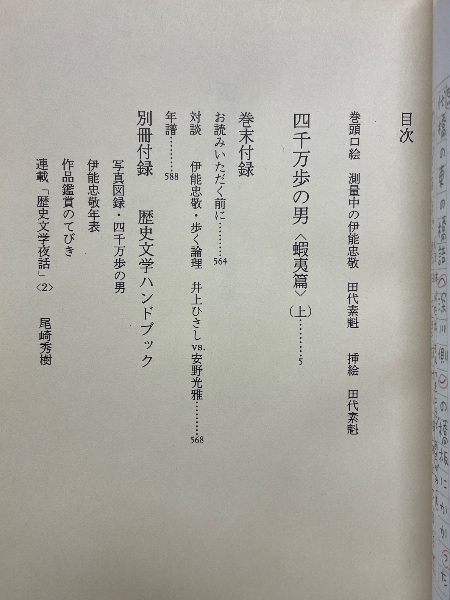 目次
巻頭口絵 測量中の伊能忠敬 田代素魁 挿絵 田代素魁
四千万歩の男〈蝦夷篇〉(上)………5
巻末付録
お読みいただく前に………564
対談 伊能忠敬・歩く論理 井上ひさしvs.安野光雅………568
年譜………588
別冊付録 歴史文学ハンドブック
写真図録・四千万歩の男
伊能忠敬年表
作品鑑賞のてびき
連載「歴史文学夜話」〈2〉 尾崎秀樹